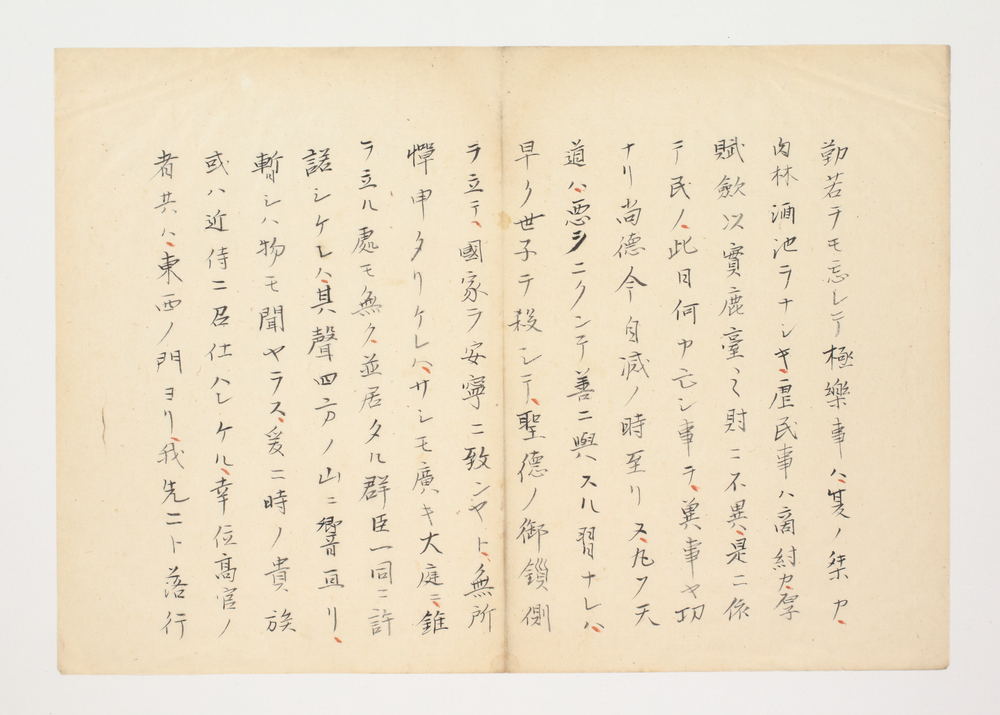 勤若ラモ忘レテ極樂事ハ、夏ノ桀カ、
肉林酒池ヲナシキ、虐民事ハ商紂カ、厚
賦斂以實鹿臺之財ニ不異、是ニ依
テ民人、此日何カ亡ン事ヲ、冀事ヤ切
ナリ尚德今自滅ノ時至リヌ、凡ソ天
道ハ、悪ヲニクンテ善ニ與スル習ナレハ、
早ク世子ヲ殺シテ、聖德ノ御鎖側
ヲ立テ、國家ヲ安寧ニ致シヤト、無所
憚申タリケレハ、サシモ廣キ大庭ニ、錐
ヲ立ル處モ無ク、並居タル群臣一同ニ許
諾シケレハ、其聲四方ノ山ニ響亘リ、
暫シハ物モ聞ヤラス、爰ニ時ノ貴族
或ハ近侍ニ召仕ハレケル、幸位高官ノ
者共ハ、東西ノ門ヨリ、我先ニト落行